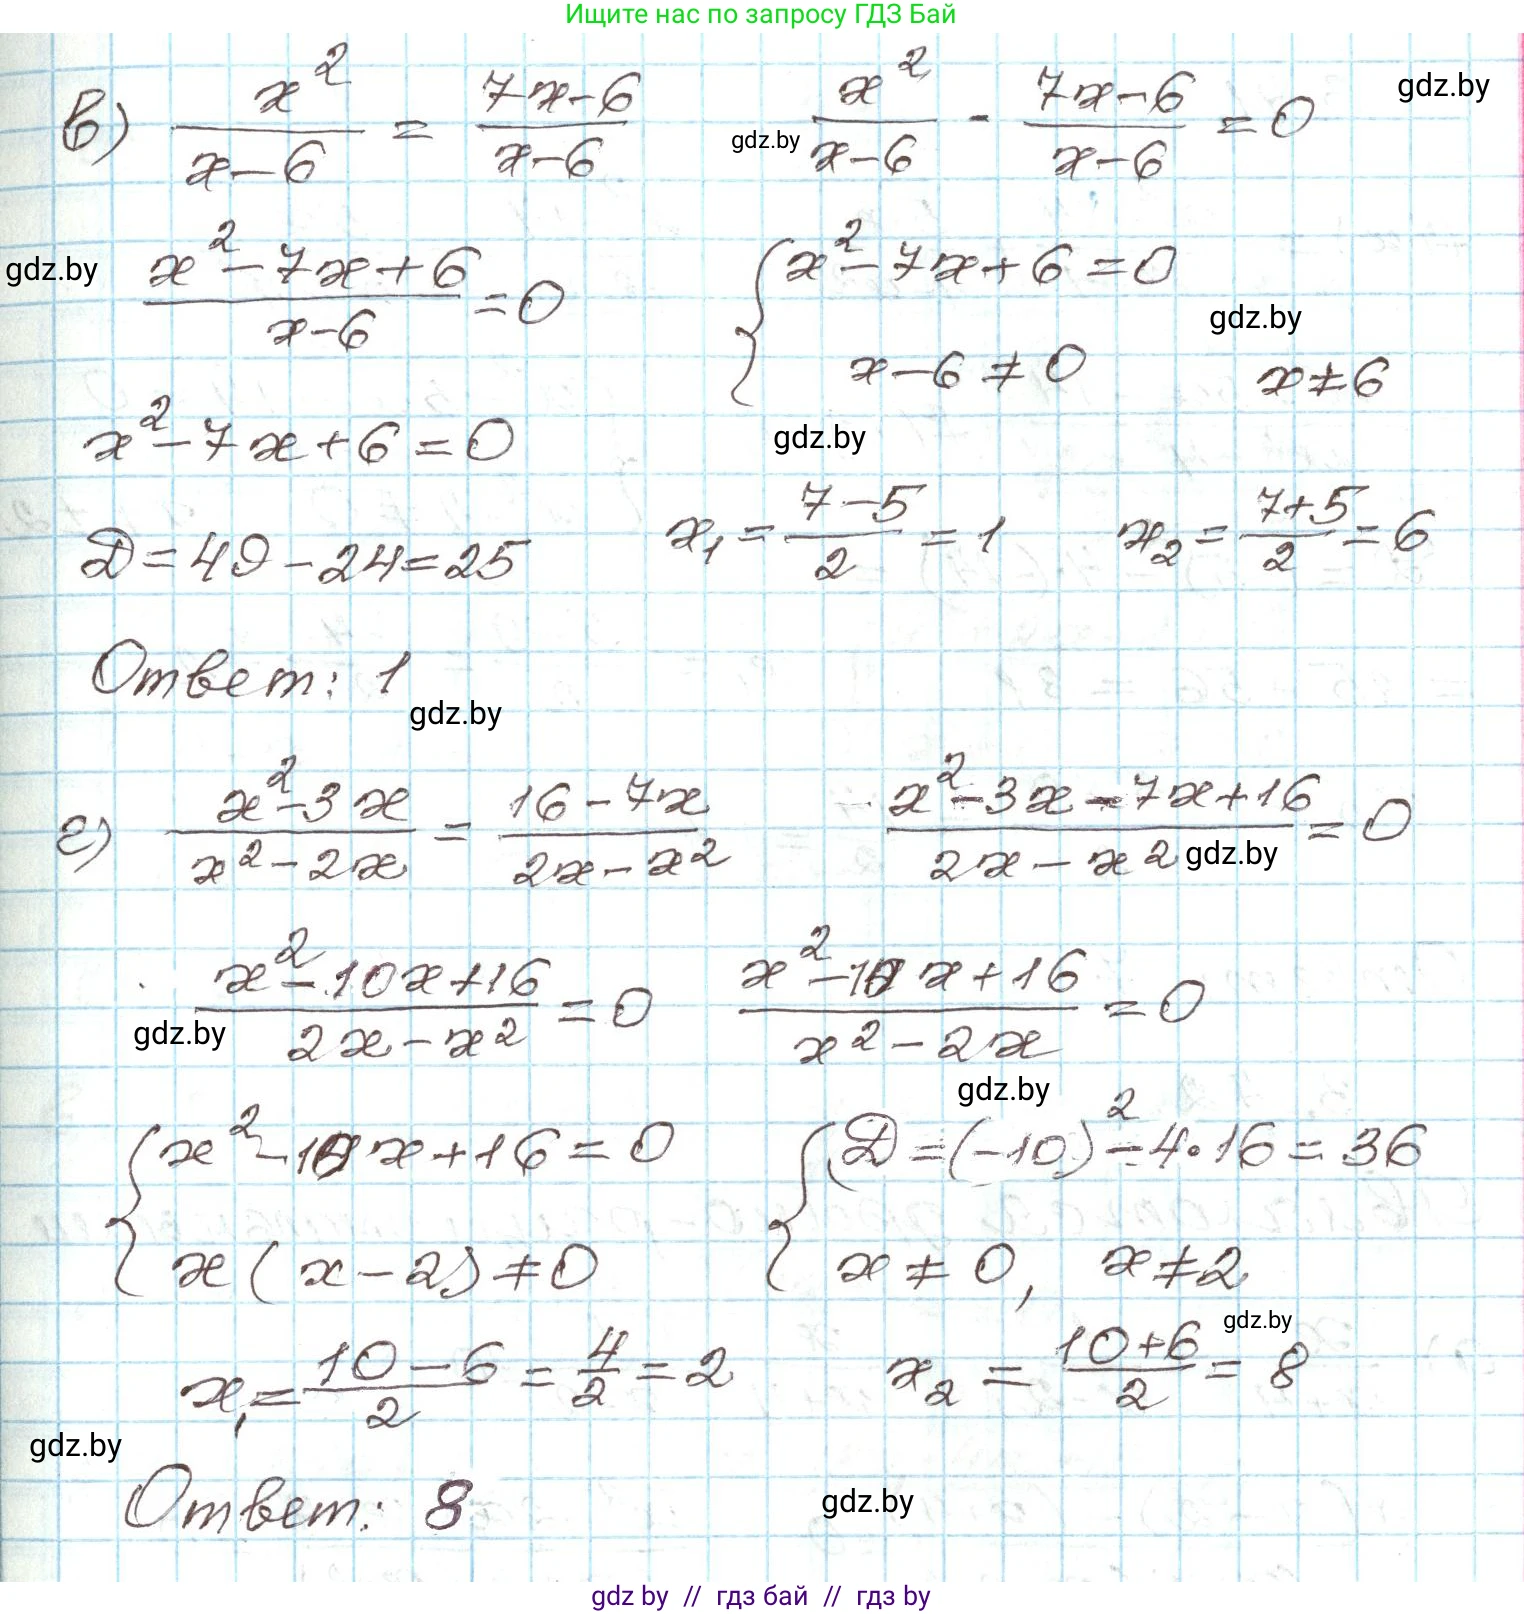 Ищите нас по запросу ГДЗ Бай
в) x²/(x-6) = (7x-6)/(x-6) gdz.by x²/(x-6) - (7x-6)/(x-6) = 0 gdz.by
gdz.by (x²-7x+6)/(x-6) = 0 { x²-7x+6=0
gdz.by
x-6≠0 x≠6
x²-7x+6=0 gdz.by
D=49-24=25 x₁=(7-5)/2=1 x₂=(7+5)/2=6
Ответ: 1
gdz.by
г) (x²-3x)/(x²-2x) = (16-7x)/(2x-x²) (x²-3x-7x+16)/(2x-x²) = 0
gdz.by
(x²-10x+16)/(2x-x²) = 0 (x²-10x+16)/(x²-2x) = 0
gdz.by
gdz.by
{ x²-10x+16=0 { D=(-10)²-4·16=36
x(x-2)≠0 x≠0, x≠2
gdz.by
x₁=(10-6)/2=4/2=2 x₂=(10+6)/2=8
gdz.by
Ответ: 8 gdz.by
gdz by // гдз бай // гдз by